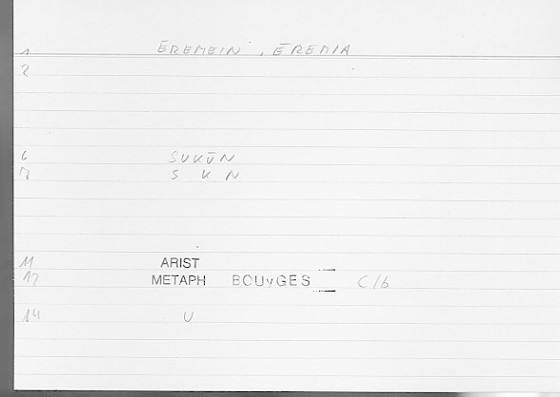 1 EREMEIN, EREMIA
2
6 SUKŪN
7 S K N
11 ARIST
12 METAPH BOUYGES C/b
14 U